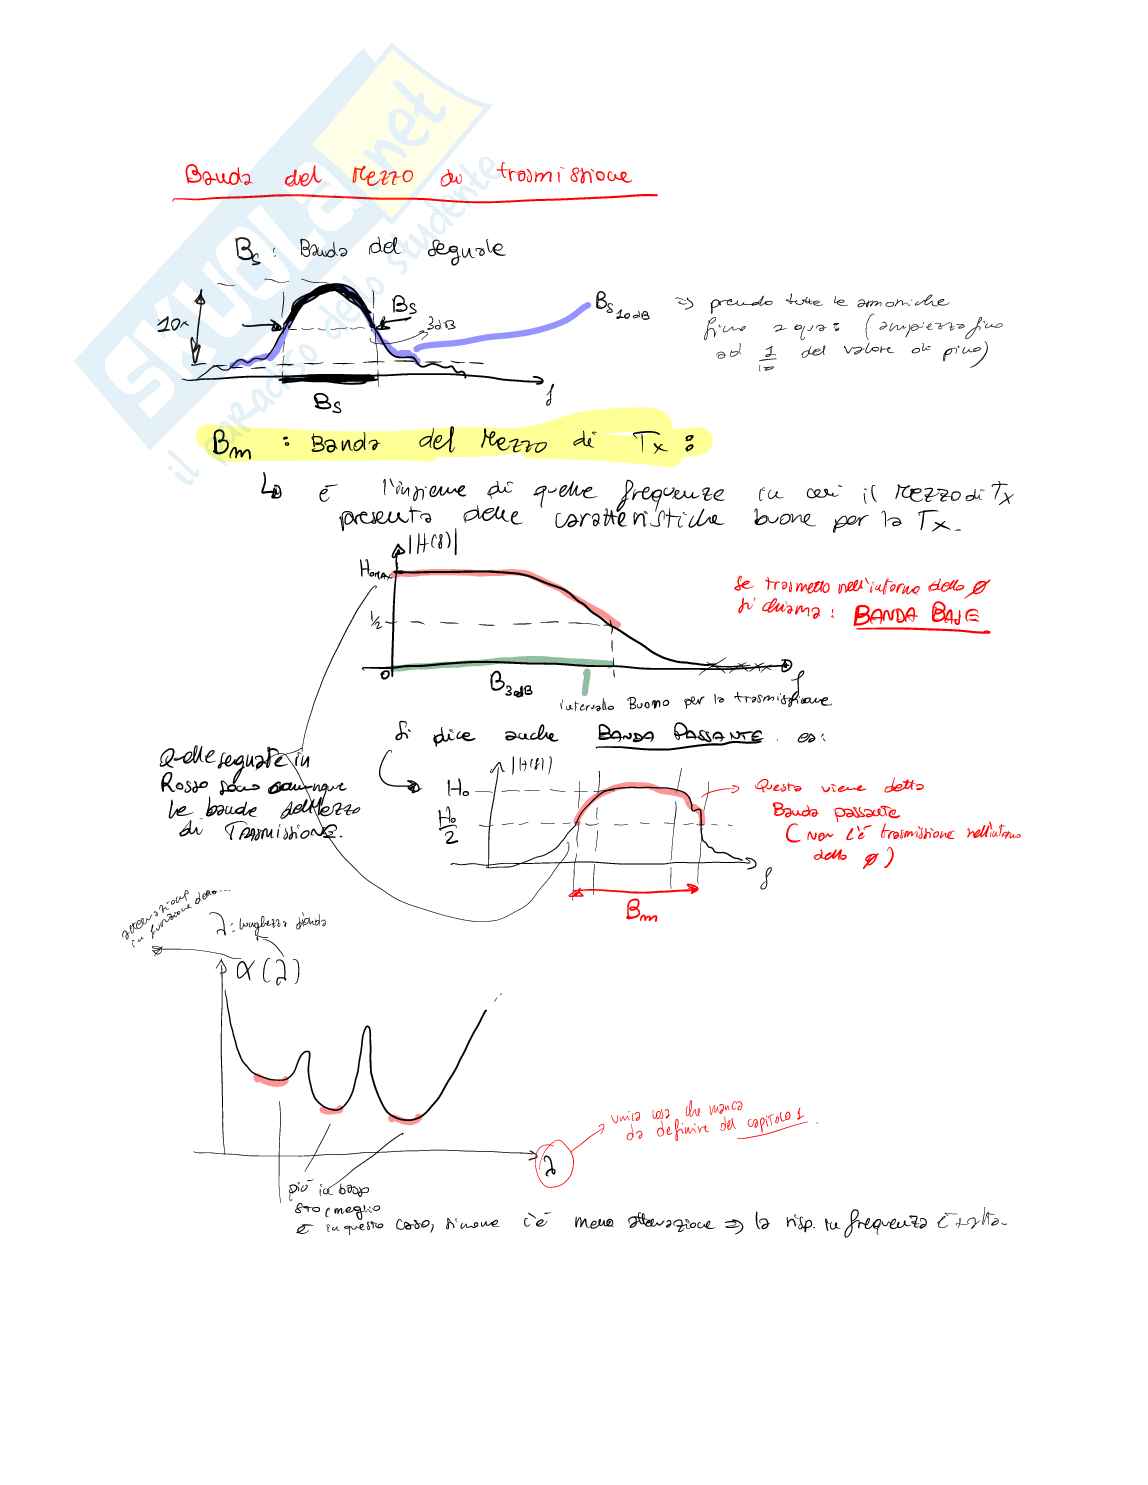 SKUOLA.net
il paradiso dello studente
Banda del Mezzo di trasmissione
Bs : Banda del segnale
10x
Bs
3dB
Bs 10dB
=> prendo tutte le armoniche
fino a qua: (ampiezza fino
ad 1/10 del valore di picco)
Bs
f
Bm : Banda del Mezzo di Tx :
↳ è l'insieme di quelle frequenze in cui il Mezzo di Tx
presenta delle caratteristiche buone per la Tx.
|H(f)|
HoMAX
1/2
0
B3dB
f
intervallo Buono per la trasmissione
Se trasmetto nell'intorno dello ∅
si chiama: BANDA BASE
Si dice anche BANDA PASSANTE. es:
Quelle segnate in
Rosso sono comunque
le bande del Mezzo
di TRASMISSIONE.
|H(f)|
Ho
Ho/2
f
Bm
→ Questa viene detta
Banda passante
(Non c'è trasmissione nell'intorno
dello ∅)
attenuazione
in funzione della...
λ: lunghezza d'onda
α(λ)
λ
unica cosa che manca
da definire del capitolo 1.
più in basso
sto, meglio
è in questo caso, siccome c'è meno attenuazione => la risp. in frequenza è + alta.